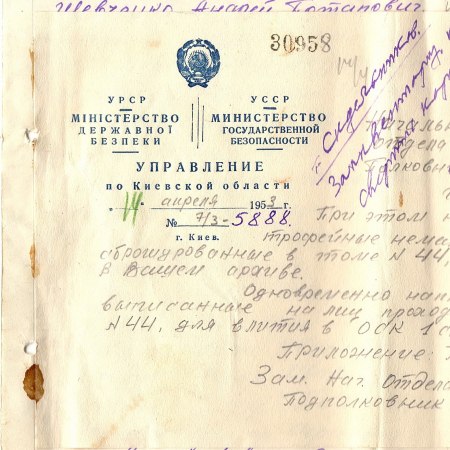 Шевченко Андрей Потапович.
30958
УРСР
МІНІСТЕРСТВО
ДЕРЖАВНОЇ
БЕЗПЕКИ
УССР
МИНИСТЕРСТВО
ГОСУДАРСТВЕННОЙ
БЕЗОПАСНОСТИ
УПРАВЛЕНИЕ
по Киевской области
"14" апреля 1953 г.
№ 7/3-5888.
г. Киев.
т. Сидельникову.
Начальн
Отдела
Подковни
При этом н
трофейные нема
сброшурованные в томе N 44,
в Вашем архиве.
Одновременно нап
выписанные на лиц проход
N 44, для влития в ОСК 1 с
Приложение:
Зам. Нач. Отдела
Подполковник